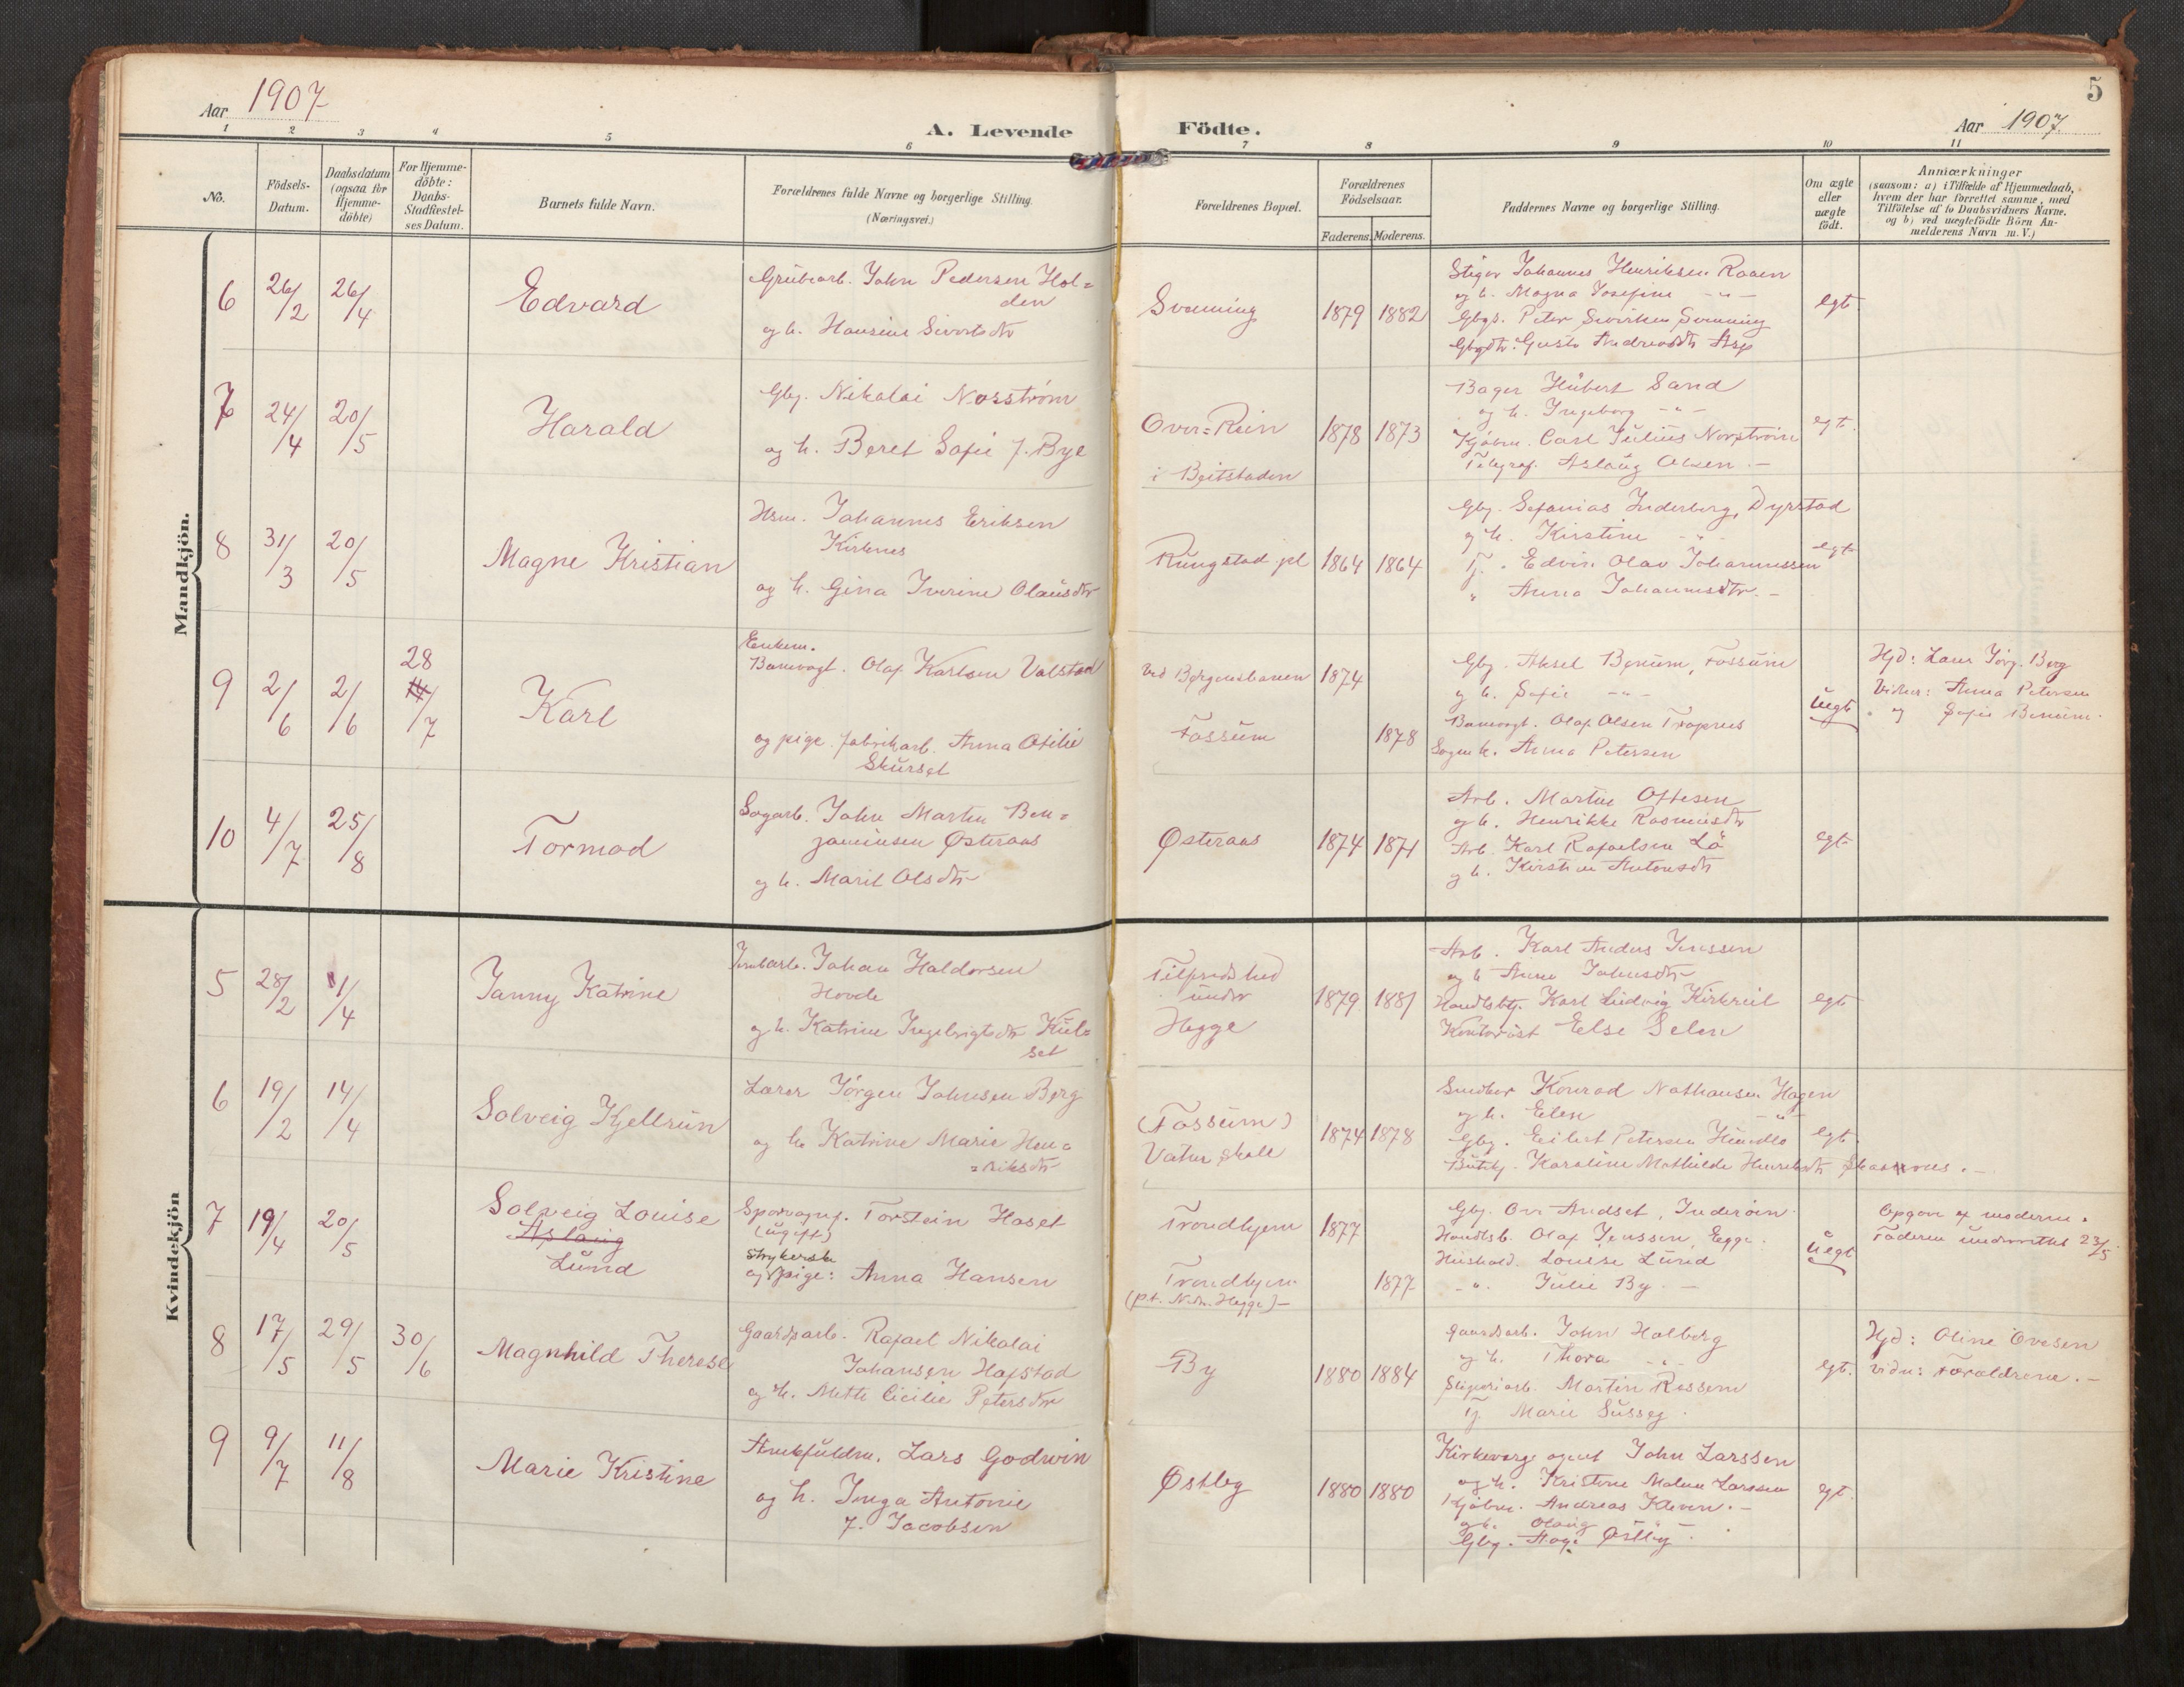 Aar 1907
A. Levende
Födte.
Aar 1907.
5
1 2 3 4 5 6 7 8 9 10 11
No.
Födsels-
Datum.
Daabsdatum
(ogsaa for
Hjemme-
döbte)
For Hjemme-
döbte:
Daabs-
Stadfæstel-
ses Datum.
Barnets fulde Navn.
Forældrenes fulde Navne og borgerlige Stilling.
(Næringsvei.)
Forældrenes Bopæl.
Forældrenes
Födselsaar.
Faderens. Moderens.
Faddernes Navne og borgerlige Stilling.
Om ægte
eller
uægte
födt.
Anmærkninger
(saasom: a) i Tilfælde af Hjemmedaab,
hvem der har forrettet samme, med
Tilföielse af to Daabsvidners Navne.
og b) ved uægtefödte Börn An-
melderens Navn m. V.)
Mandkjön.
6 26/2 26/4
Edvard
Grubearb. John Pedersen Hol=
den
og h. Hansine Sivertsdtr
Svenning
1879 1882
Stiger Johannes Henriksen Raaen
og h. Magna Josefine -"-
Gbgs. Peter Sivertsen Svenning
Gbgdtr. Gusta Andreasdtr Asp
egt.
7 24/4 20/5
Harald
Gbg. Nikolai Nosström
og h. Beret Sofie f. Bye
Over=Rein
i Beitstaden
1878 1873
Bager Hübert Sand
og h. Ingeborg -"-
Kjöbm. Carl Julius Norström
Telegraf. Aslaug Olsen.-
egt.
8 31/3 20/5
Magne Kristian
Hsm. Johannes Eriksen
Kirknes
og h. Gina Iverine Olausdtr
Rungstad pl
1864 1864
Gbg. Sefanias Inderberg, Dyrstad
og h. Kirstine -"-
Tj. Edvin Olav Johannessen
" Anna Johannesdtr.-
egt
9 2/6 2/6 28 14/7
Karl
Enkem.
Banevogt. Olaf Karlsen Valstad
og pige. fabrikarb. Anna Otilie
Skurset
Ved Bergensbanen
Fossum
1874
1878
Gbg. Aksel Benum, Fossum
og h. Sofie -"-
Banevogt. Olaf Olsen
Anna Petersen
Uegt
Hjd: Lærer Jörg. Berg
Vidner: Anna Petersen
og Sofie Benum.
10 4/7 25/8
Tormod
Sagarb. John Martin Ben=
jaminsen Østeraas
og h. Marit Olsdtr
Østeraas
1874 1871
Arb. Martin Ottesen
og h. Henrikke Rasmusdtr
Arb. Karl Rafaelsen Lö
og h. Kirstine Antonsdtr
egt
Kvindekjön
5 28/2 1/4
Janny Katrine
Johan Haldorsen
Hovde
og h. Katrine Ingebrigtsdtr Kül=
set
Tilfredshed
under
Hegge
1879 1881
Arb. Karl Anders Jenssen
og h Anna Johnsdtr
Handlsbtj. Karl Ludvig
Kontorist Else Selen
egt
6 19/2 14/4
Solveig Kjellrun
Lærer Jörgen Johnsen Berg
og h. Katrine Marie Hen=
=riksdtr
(Fossum)
Vatne skole
1874 1878
Smedker Konrad Nathansen Hagen
og h. Elen -"-
Gbg. Eilert Petersen
Butikj. Karoline Mathilde Henriksdtr
egt.
7 19/4 20/5
Solveig Louise
Aslaug
Lund
Sporvognsf. Torstein Haset
(ugift)
Strykerske
og pige: Anna Hansen
Trondhjem
Trondhjem
(p.t. Ndr. Hegge)-
1877
1877
Gbg. Ove Andset, Inderöen
Handlsb. Olaf Jenssen, Egge.
Hushold. Louise Lund
-"- Julie By.-
Uegt
Opgave af moderen.
Faderen underrettet 23/5.
8 17/5 29/5 30/6
Magnhild Therese
Gaardsarb. Rafael Nikolai
Johansen Hafstad
og h. Mette Cicilie Petersdtr
By
1880 1884
Gaardsarb. John Halberg
og h. Thora -"-
Sliperiarb. Martin Rossem
Tj. Marie Susseg.
egt.
Hjd: Oline Ovesen
Vidn: Forældrene.-
9 9/7 11/8
Marie Kristine
Amtsfuldm. Lars Godwin
og h. Inga Antonie
f. Jacobsen
Østby
1880 1880
Kirkeverge agent John Larssen
og h. Kristine Malene Larssen
Kjöbm. Andreas Kleven.-
og h. Olaug -"-
Gbg. Aage Østby.
egt.